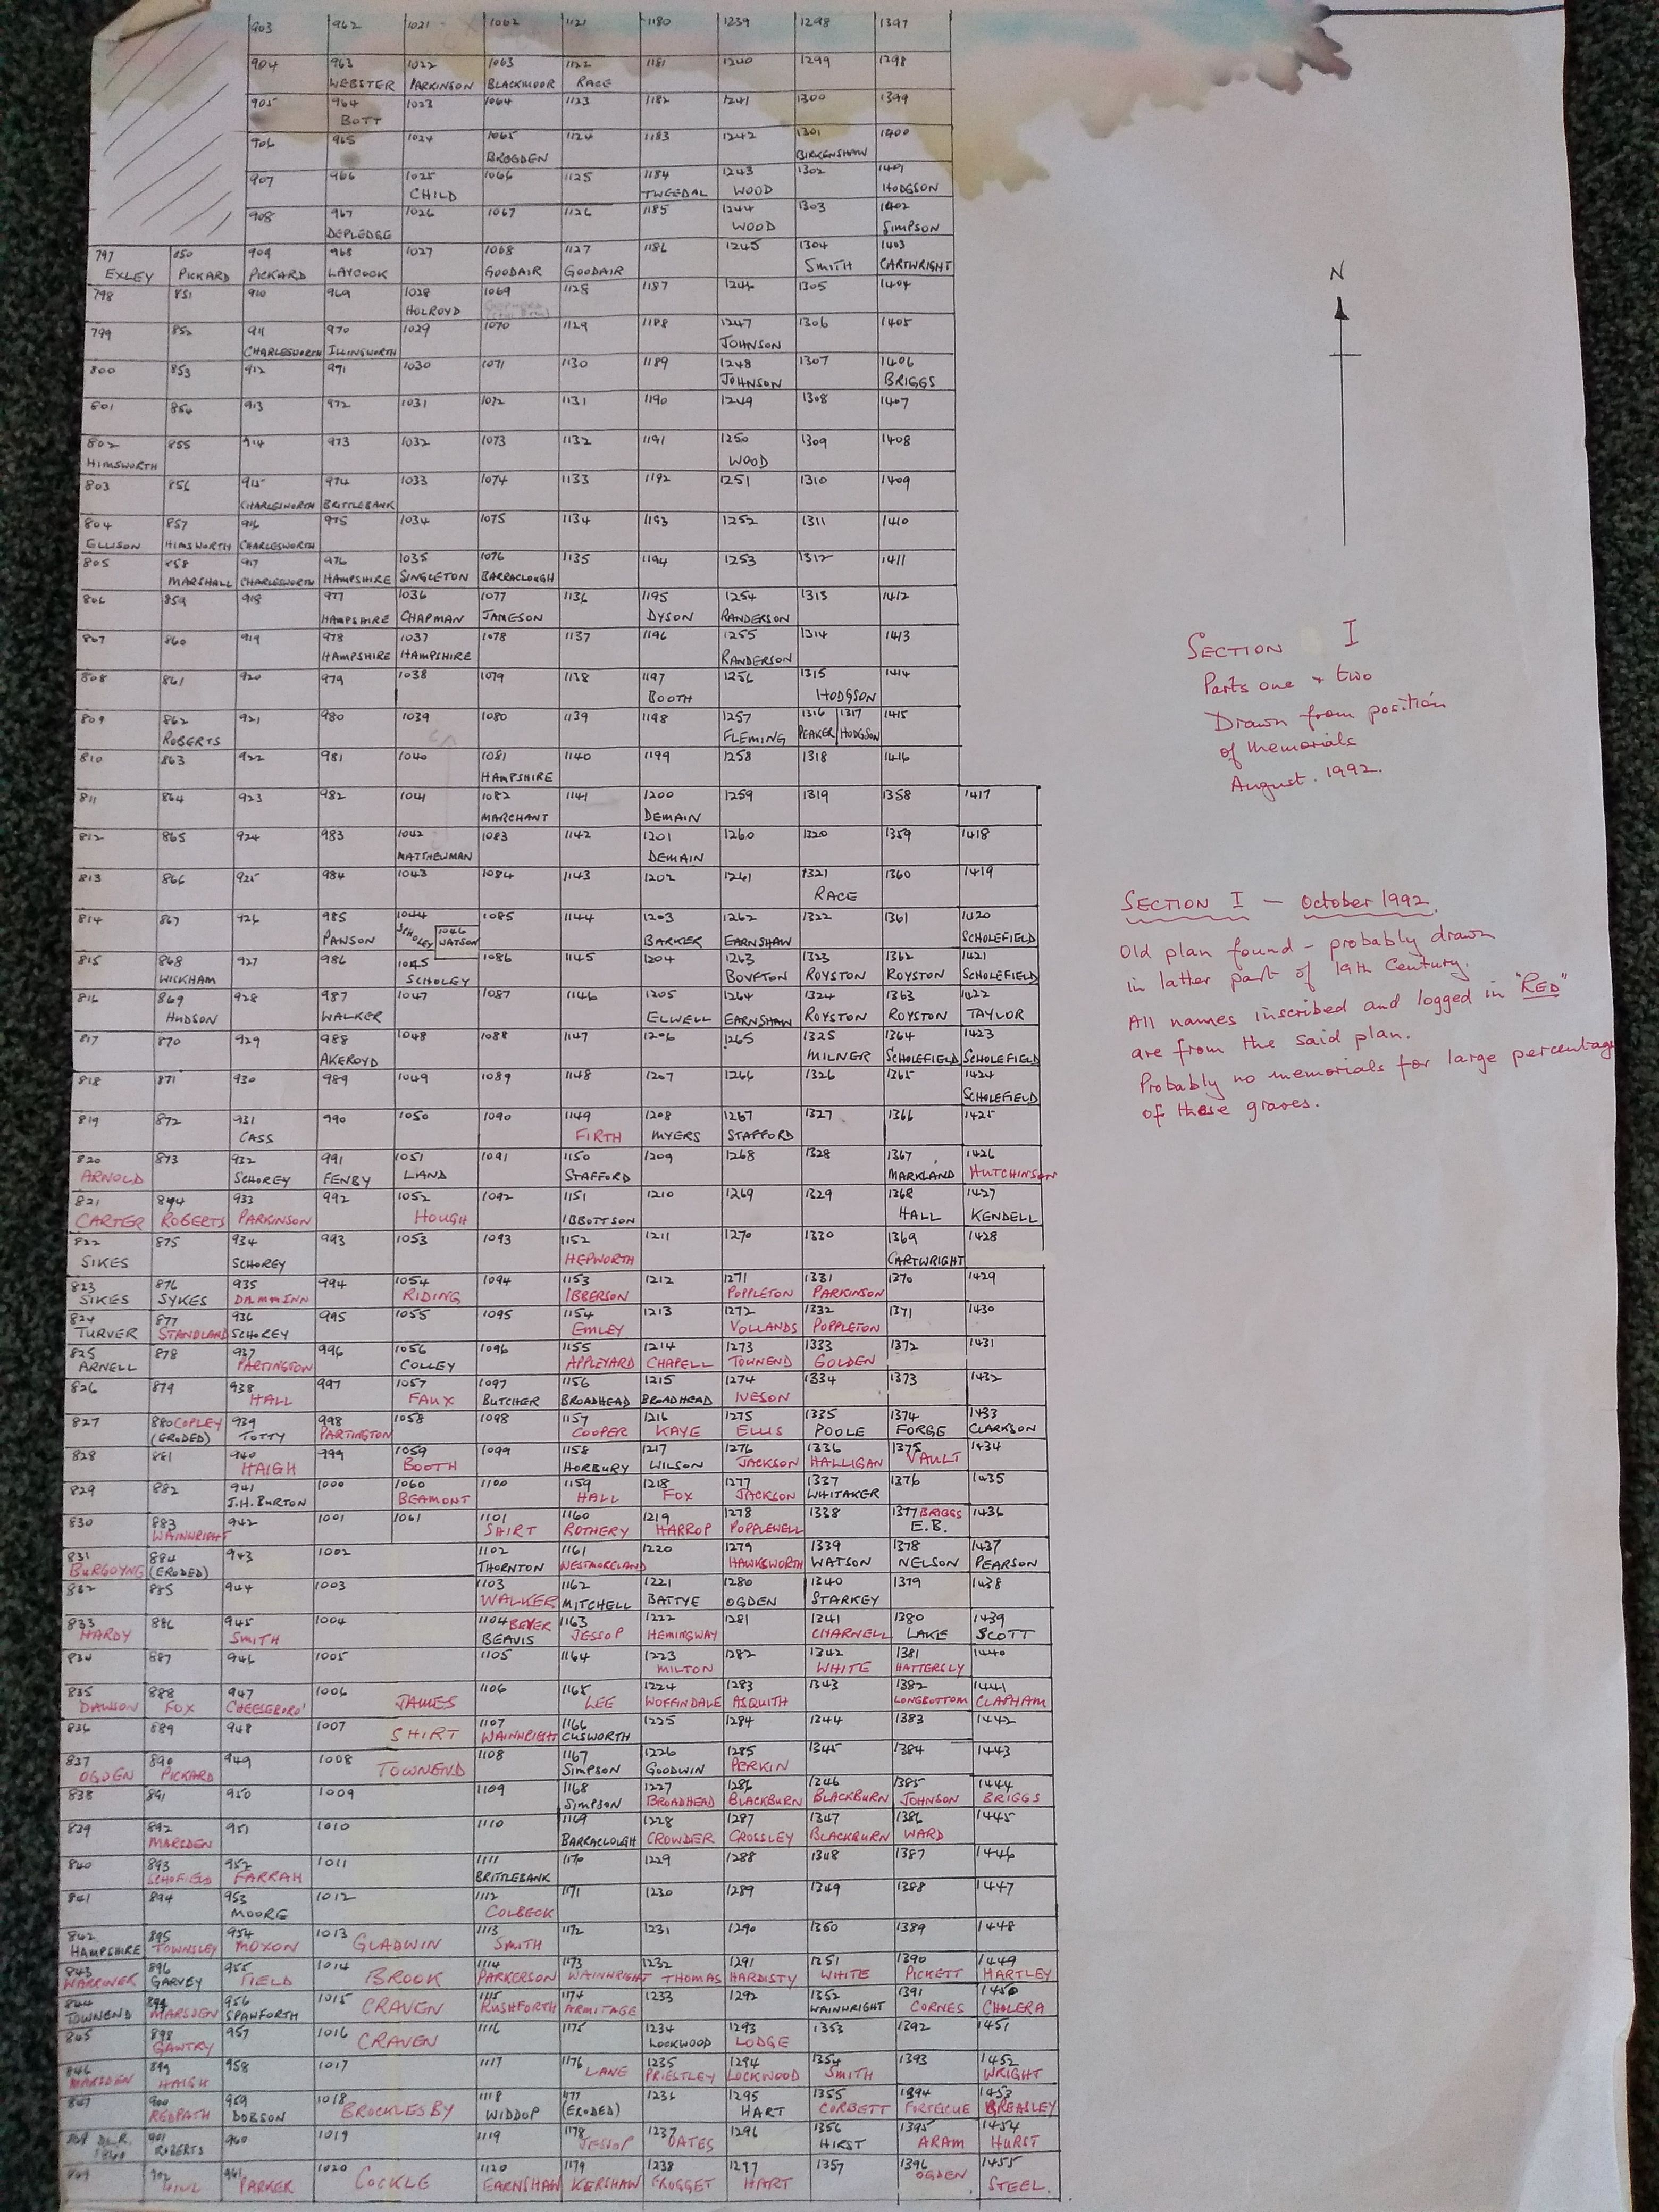 903 962 1021 1062 1121 1180 1239 1298 1397
904 963 1022 1063 1122 1181 1240 1299 1298
WEBSTER PARKINSON BLACKMOOR RACE
905 964 1023 1064 1123 1182 1241 1300 1399
BOTT
906 965 1024 1065 1124 1183 1242 1301 1400
BROGDEN BIRKENSHAW
907 966 1025 1066 1125 1184 1243 1302 1401
CHILD TWEEDAL WOOD HODGSON
908 967 1026 1067 1126 1185 1244 1303 1402
DEPLEDGE WOOD SIMPSON
797 850 909 968 1027 1068 1127 1186 1245 1304 1403
EXLEY PICKARD PICKARD LAYCOCK GOODAIR GOODAIR SMITH CARTWRIGHT
798 851 910 969 1028 1069 1128 1187 1246 1305 1404
HOLROYD
799 852 911 970 1029 1070 1129 1188 1247 1306 1405
CHARLESWORTH ILLINGWORTH JOHNSON
800 853 912 971 1030 1071 1130 1189 1248 1307 1406
JOHNSON BRIGGS
801 854 913 972 1031 1072 1131 1190 1249 1308 1407
802 855 914 973 1032 1073 1132 1191 1250 1309 1408
HIMSWORTH WOOD
803 856 915 974 1033 1074 1133 1192 1251 1310 1409
CHARLESWORTH BRITTLEBANK
804 857 916 975 1034 1075 1134 1193 1252 1311 1410
ELLISON HIMSWORTH CHARLESWORTH
805 858 917 976 1035 1076 1135 1194 1253 1312 1411
MARSHALL CHARLESWORTH HAMPSHIRE SINGLETON BARRACLOUGH
806 859 918 977 1036 1077 1136 1195 1254 1313 1412
HAMPSHIRE CHAPMAN JAMESON DYSON RANDERSON
807 860 919 978 1037 1078 1137 1196 1255 1314 1413
HAMPSHIRE HAMPSHIRE RANDERSON
808 861 920 979 1038 1079 1138 1197 1256 1315 1414
BOOTH HODGSON
809 862 921 980 1039 1080 1139 1198 1257 1316 1317 1415
ROBERTS FLEMING PEAKER HODGSON
810 863 922 981 1040 1081 1140 1199 1258 1318 1416
HAMPSHIRE
811 864 923 982 1041 1082 1141 1200 1259 1319 1358 1417
MARCHANT DEMAIN
812 865 924 983 1042 1083 1142 1201 1260 1320 1359 1418
MATTHEWMAN DEMAIN
813 866 925 984 1043 1084 1143 1202 1261 1321 1360 1419
RACE
814 867 926 985 1044 1046 1085 1144 1203 1262 1322 1361 1420
PAWSON SCHOLEY WATSON BARKER EARNSHAW SCHOLEFIELD
815 868 927 986 1045 1086 1145 1204 1263 1323 1362 1421
WICKHAM SCHOLEY BOVFTON ROYSTON ROYSTON SCHOLEFIELD
816 869 928 987 1047 1087 1146 1205 1264 1324 1363 1422
HUDSON WALKER ELWELL EARNSHAW ROYSTON ROYSTON TAYLOR
817 870 929 988 1048 1088 1147 1206 1265 1325 1364 1423
AKEROYD MILNER SCHOLEFIELD SCHOLEFIELD
818 871 930 989 1049 1089 1148 1207 1266 1326 1365 1424
SCHOLEFIELD
819 872 931 990 1050 1090 1149 1208 1267 1327 1366 1425
CASS FIRTH MYERS STAFFORD
820 873 932 991 1051 1091 1150 1209 1268 1328 1367 1426
ARNOLD SCHOREY FENBY LAND STAFFORD MARKLAND HUTCHINSON
821 874 933 992 1052 1092 1151 1210 1269 1329 1368 1427
CARTER ROBERTS PARKINSON HOUGH IBBOTTSON HALL KENDELL
822 875 934 993 1053 1093 1152 1211 1270 1330 1369 1428
SIKES SCHOREY HEPWORTH CARTWRIGHT
823 876 935 994 1054 1094 1153 1212 1271 1331 1370 1429
SIKES SYKES RIDING IBBERSON POPPLETON PARKINSON
824 877 936 995 1055 1095 1154 1213 1272 1332 1371 1430
TURVER STANDLAND SCHOREY EMLEY VOLLANDS POPPLETON
825 878 937 996 1056 1096 1155 1214 1273 1333 1372 1431
ARNELL PARTINGTON COLLEY APPLEYARD CHAPELL TOWNEND GOLDEN
826 879 938 997 1057 1097 1156 1215 1274 1334 1373 1432
HALL FAUX BUTCHER BROADHEAD BROADHEAD IVESON
827 880 COPLEY 939 998 1058 1098 1157 1216 1275 1335 1374 1433
(ERODED) TOTTY PARTINGTON COOPER KAYE ELLIS POOLE FORGE CLARKSON
828 881 940 999 1059 1099 1158 1217 1276 1336 1375 1434
HAIGH BOOTH HORBURY WILSON JACKSON HALLIGAN VAULT
829 882 941 1000 1060 1100 1159 1218 1277 1337 1376 1435
J.H. BURTON BEAMONT HALL FOX JACKSON WHITAKER
830 883 942 1001 1061 1101 1160 1219 1278 1338 1377 BRIGGS 1436
WAINWRIGHT SHIRT ROTHERY HARROP POPPLEWELL E.B.
831 884 943 1002 1102 1161 1220 1279 1339 1378 1437
BURGOYNE (ERODED) THORNTON WESTMORELAND HAWKSWORTH WATSON NELSON PEARSON
832 885 944 1003 1103 1162 1221 1280 1340 1379 1438
WALKER MITCHELL BATTYE OGDEN STARKEY
833 886 945 1004 1104 BEVER 1163 1222 1281 1341 1380 1439
HARDY SMITH BEAVIS JESSOP HEMINGWAY CHARNELL LAKE SCOTT
834 887 946 1005 1105 1164 1223 1282 1342 1381 1440
MILTON WHITE HATTERSLY
835 888 947 1006 1106 1165 1224 1283 1343 1382 1441
DAWSON FOX CHEESEBORO' JAMES LEE WOFFINDALE ASQUITH LONGBOTTOM CLAPHAM
836 889 948 1007 1107 1166 1225 1284 1344 1383 1442
SHIRT WAINWRIGHT CUSWORTH
837 890 949 1008 1108 1167 1226 1285 1345 1384 1443
OGDEN PICKARD TOWNEND SIMPSON GOODWIN PERKIN
838 891 950 1009 1109 1168 1227 1286 1346 1385 1444
SIMPSON BROADHEAD BLACKBURN BLACKBURN JOHNSON BRIGGS
839 892 951 1010 1110 1169 1228 1287 1347 1386 1445
MARSDEN BARRACLOUGH CROWDER CROSSLEY BLACKBURN WARD
840 893 952 1011 1111 1170 1229 1288 1348 1387 1446
SCHOFIELD FARRAH BRITTLEBANK
841 894 953 1012 1112 1171 1230 1289 1349 1388 1447
MOORE COLBECK
842 895 954 1013 1113 1172 1231 1290 1360 1389 1448
HAMPSHIRE TOWNSLEY MOXON GLADWIN SMITH
843 896 955 1014 1114 1173 1232 1291 1251 1390 1449
WARRINER GARVEY FIELD BROOK PARKERSON WAINWRIGHT THOMAS HARDISTY WHITE PICKETT HARTLEY
844 897 956 1015 1115 1174 1233 1292 1352 1391 1450
TOWNEND MARSDEN SPAWFORTH CRAVEN RUSHFORTH ARMITAGE WAINWRIGHT CORNES CHOLERA
845 898 957 1016 1116 1175 1234 1293 1353 1392 1451
GAWTRY CRAVEN LOCKWOOD LODGE
846 899 958 1017 1117 1176 1235 1294 1354 1393 1452
MARSDEN HAIGH LANE PRIESTLEY LOCKWOOD SMITH WRIGHT
847 900 959 1018 1118 1177 1236 1295 1355 1394 1453
REDPATH DOBSON BROCKLESBY WIDDOP (ERODED) HART CORBETT FORTEICUE BREASLEY
848 D.L.R. 901 960 1019 1119 1178 1237 1296 1356 1395 1454
1860 ROBERTS JESSOP OATES HIRST ARAM HURST
849 902 961 1020 1120 1179 1238 1297 1357 1396 1455
PARKER COCKLE EARNSHAW KERSHAW FROGGET HART OGDEN STEEL
N
SECTION I
Parts one + two
Drawn from position
of memorials
August. 1992.
SECTION I — October 1992.
Old plan found - probably drawn
in latter part of 19th Century.
All names inscribed and logged in "RED"
are from the said plan.
Probably no memorials for large percentage
of these graves.